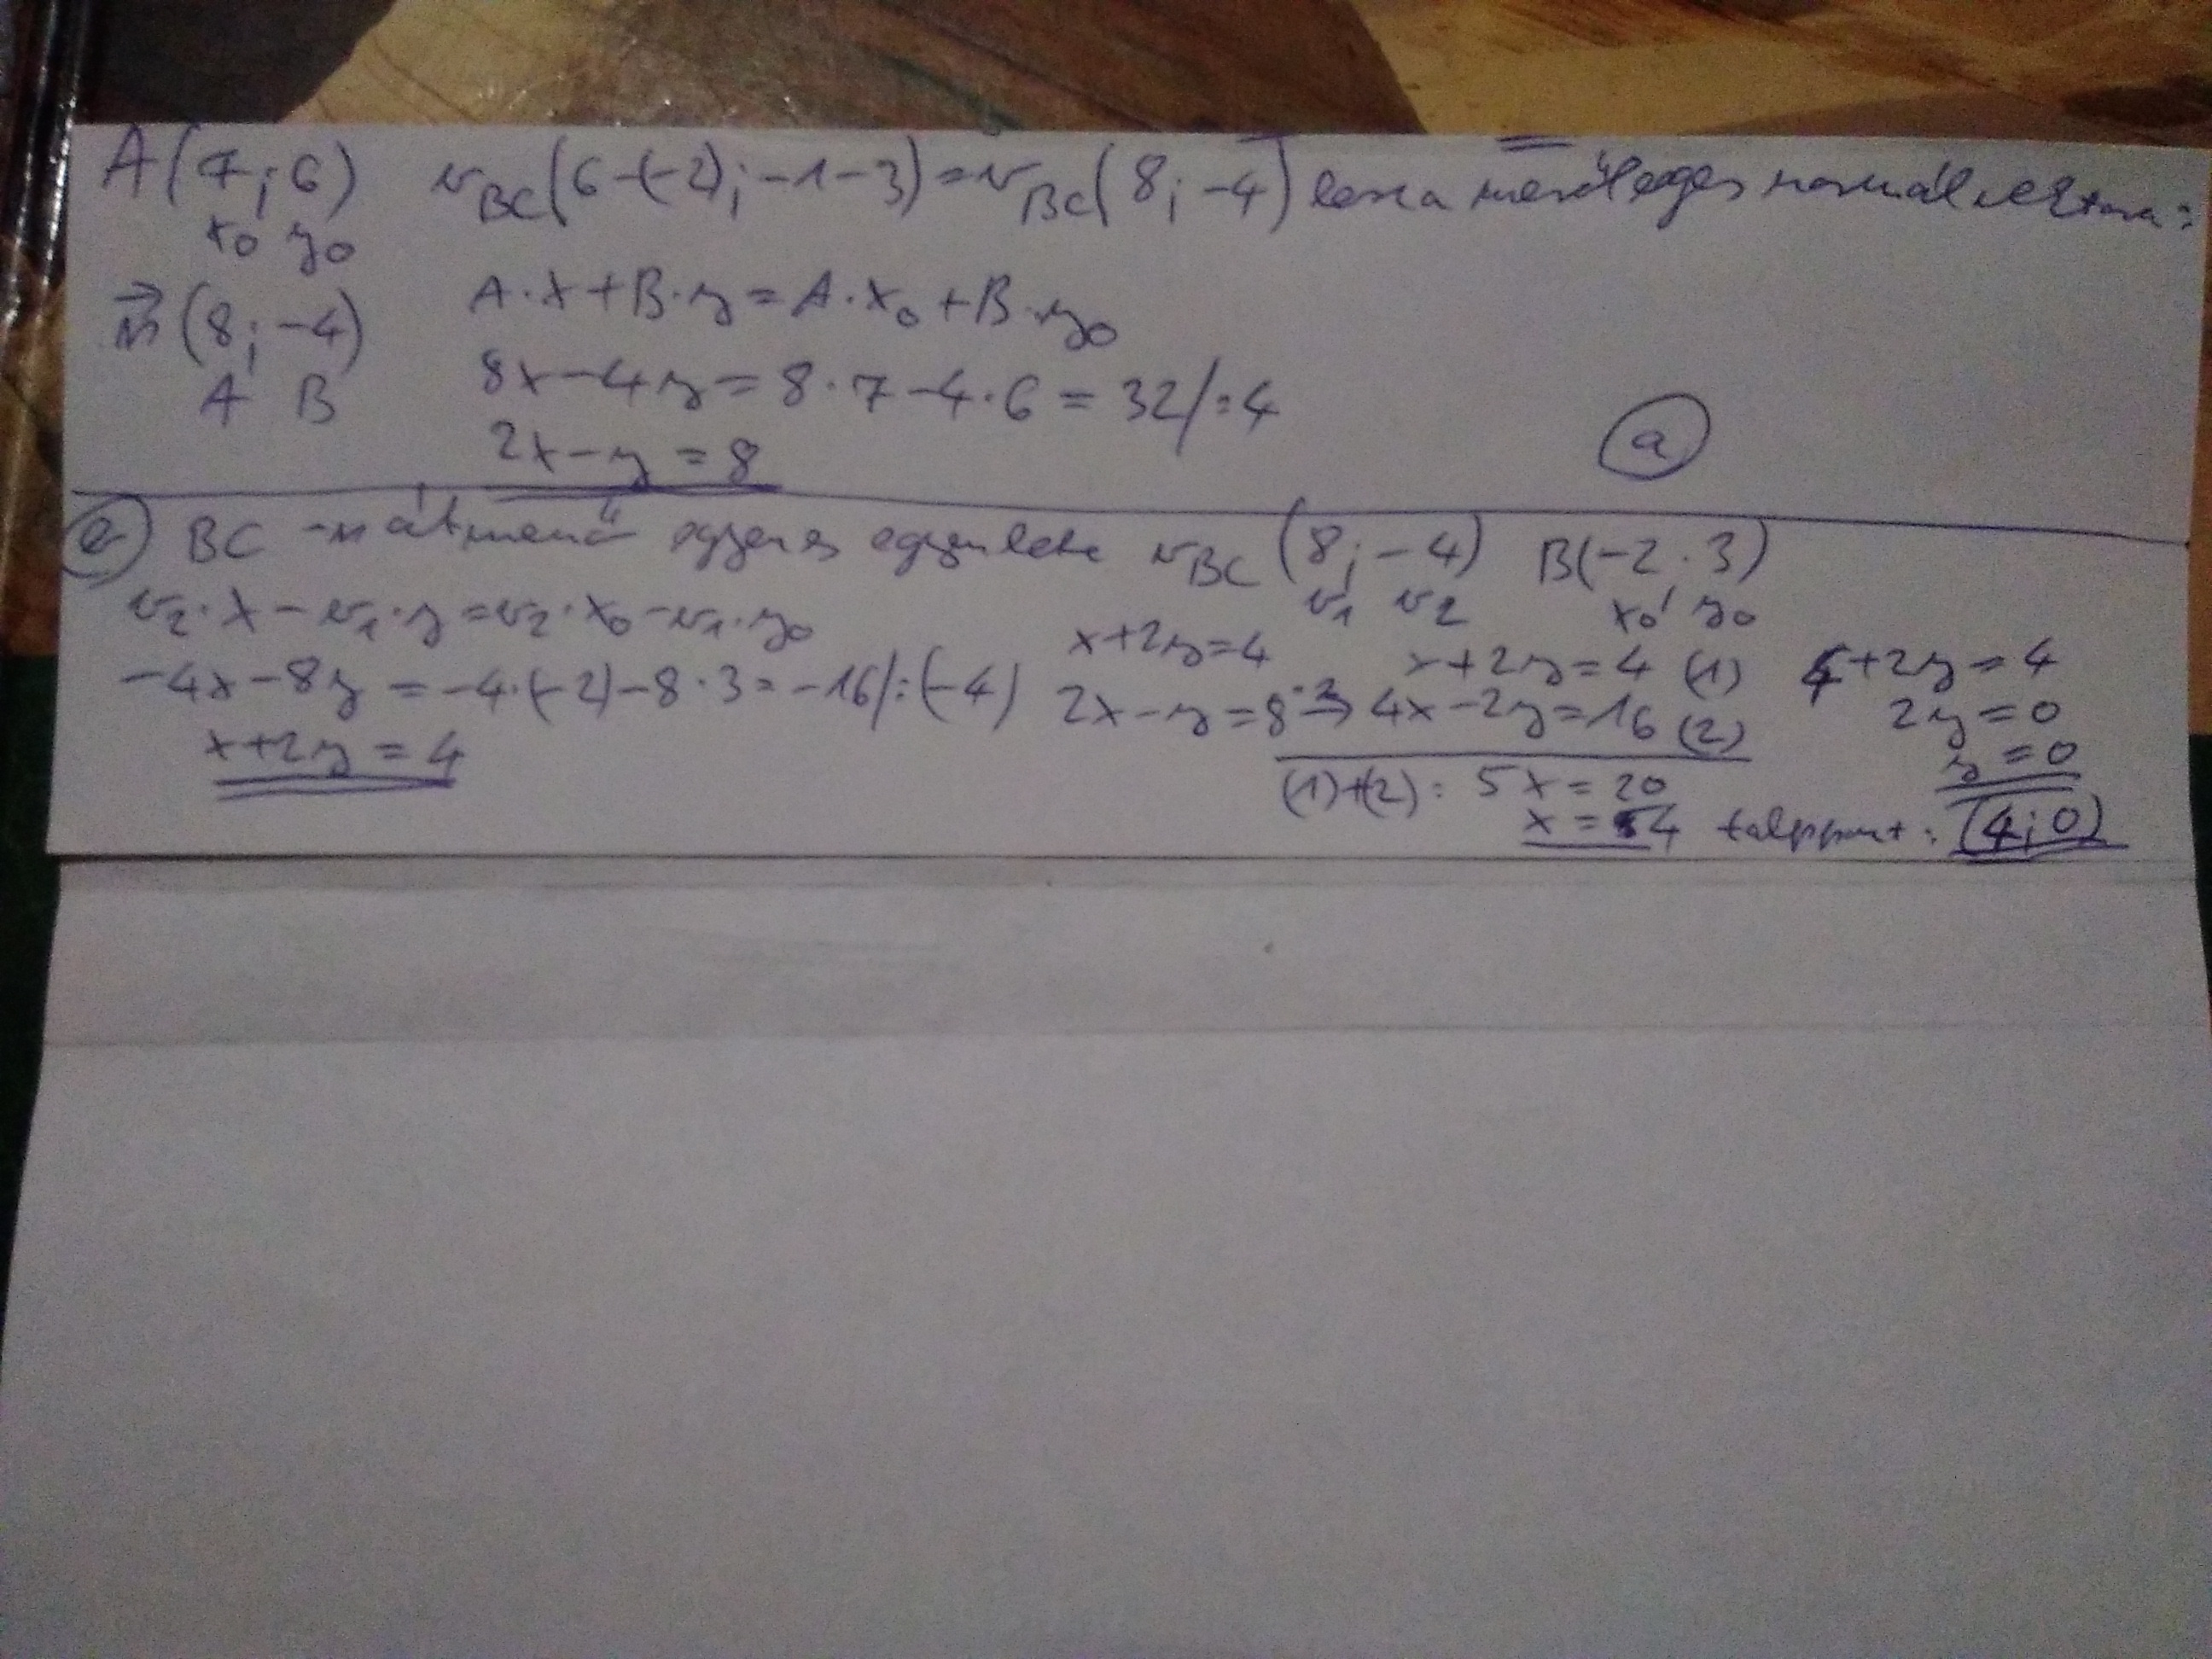 A(7;6) v_BC(6-(-2);-1-3)=v_BC(8;-4) lesz a merőleges normálvektora:
x₀ y₀
n⃗(8;-4) A·x+B·y=A·x₀+B·y₀
A B 8x-4y=8·7-4·6=32/:4
2x-y=8
a
BC-n átmenő egyenes egyenlete v_BC(8;-4) B(-2;3)
v₁ v₂ x₀ y₀
v₂·x-v₁·y=v₂·x₀-v₁·y₀
-4x-8y=-4·(-2)-8·3=-16/:(-4)
x+2y=4
x+2y=4 x+2y=4 (1)
2x-y=8 ·2→ 4x-2y=16 (2)
(1)+(2): 5x=20
x=4
4+2y=4
2y=0
y=0
talppont: (4;0)